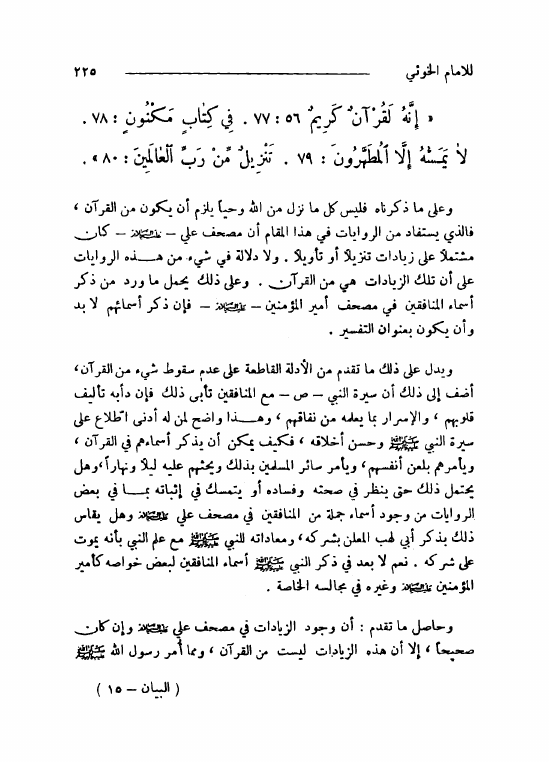 للامام الخوئي ٢٢٥
« إِنَّهُ لَقُرْآنٌ كَرِيمٌ ٥٦ : ٧٧ . فِي كِتَابٍ مَكْنُونٍ : ٧٨ .
لاٰ يَمَسُّهُ إِلَّا ٱلْمُطَهَّرُونَ : ٧٩ . تَنْزِيلٌ مِّنْ رَبِّ ٱلْعٰالَمِينَ : ٨٠ » .
وعلى ما ذكرناه فليس كل ما نزل من الله وحياً يلزم أن يكون من القرآن ،
فالذي يستفاد من الروايات في هذا المقام أن مصحف علي – عليه السلام – كان
مشتملا على زيادات تنزيلاً أو تأويلاً . ولا دلالة في شيء من هـذه الروايات
على أن تلك الزيادات هي من القرآن . وعلى ذلك يحمل ما ورد من ذكر
أسماء المنافقين في مصحف أمير المؤمنين – عليه السلام – فإن ذكر أسمائهم لا بد
وأن يكون بعنوان التفسير .
ويدل على ذلك ما تقدم من الأدلة القاطعة على عدم سقوط شيء من القرآن،
أضف إلى ذلك أن سيرة النبي – ص – مع المنافقين تأبى ذلك فإن دأبه تأليف
قلوبهم ، والإسرار بما يعلمه من نفاقهم ، وهـذا واضح لمن له أدنى اطلاع على
سيرة النبي ﷺ وحسن أخلاقه ، فكيف يمكن أن يذكر أسماءهم في القرآن ،
ويأمرهم بلعن أنفسهم، ويأمر سائر المسلمين بذلك ويحثهم عليه ليلاً ونهاراً،وهل
يحتمل ذلك حتى ينظر في صحته وفساده أو يتمسك في إثباته بمـا في بعض
الروايات من وجود أسماء جملة من المنافقين في مصحف علي عليه السلام وهل يقاس
ذلك بذكر أبي لهب المعلن بشركه، ومعاداته للنبي ﷺ مع علم النبي بأنه يموت
على شركه . نعم لا بعد في ذكر النبي ﷺ أسماء المنافقين لبعض خواصه كأمير
المؤمنين عليه السلام وغيره في مجالسه الخاصة .
وحاصل ما تقدم : أن وجود الزيادات في مصحف علي عليه السلام وإن كان
صحيحاً ، إلا أن هذه الزيادات ليست من القرآن ، ومما أمر رسول الله ﷺ
( البيان – ١٥ )